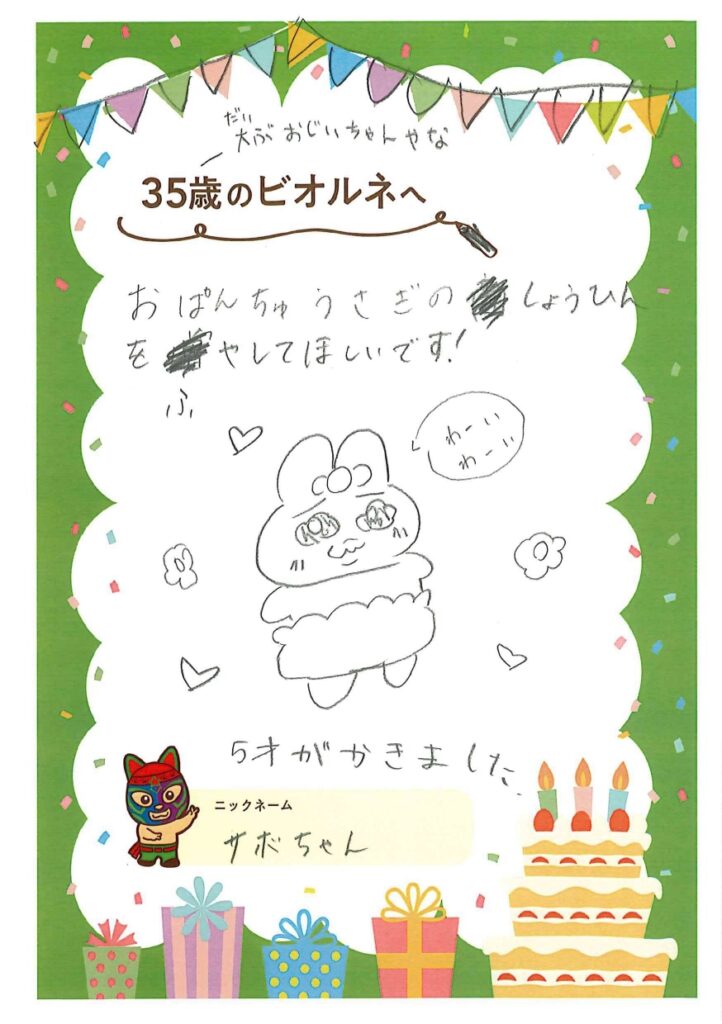 だい
大ぶおじいちゃんやな
35歳のビオルネへ
おぱんちゅうさぎの しょうひん
を やしてほしいです!
ふ
わーい
わーい
5才がかきました
ニックネーム
サボちゃん